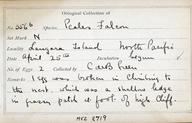 Oological Collection of
No. 356b Species Peales Falcon
Set Mark N
Locality Langara Island North Pacific
Date April 25th Incubation begun
No. of Eggs 2 Collected by C de B Green
Remarks 1 egg was broken in climbing to
the nest, which was a shallow ledge
in grassy patch at foot of high cliff.